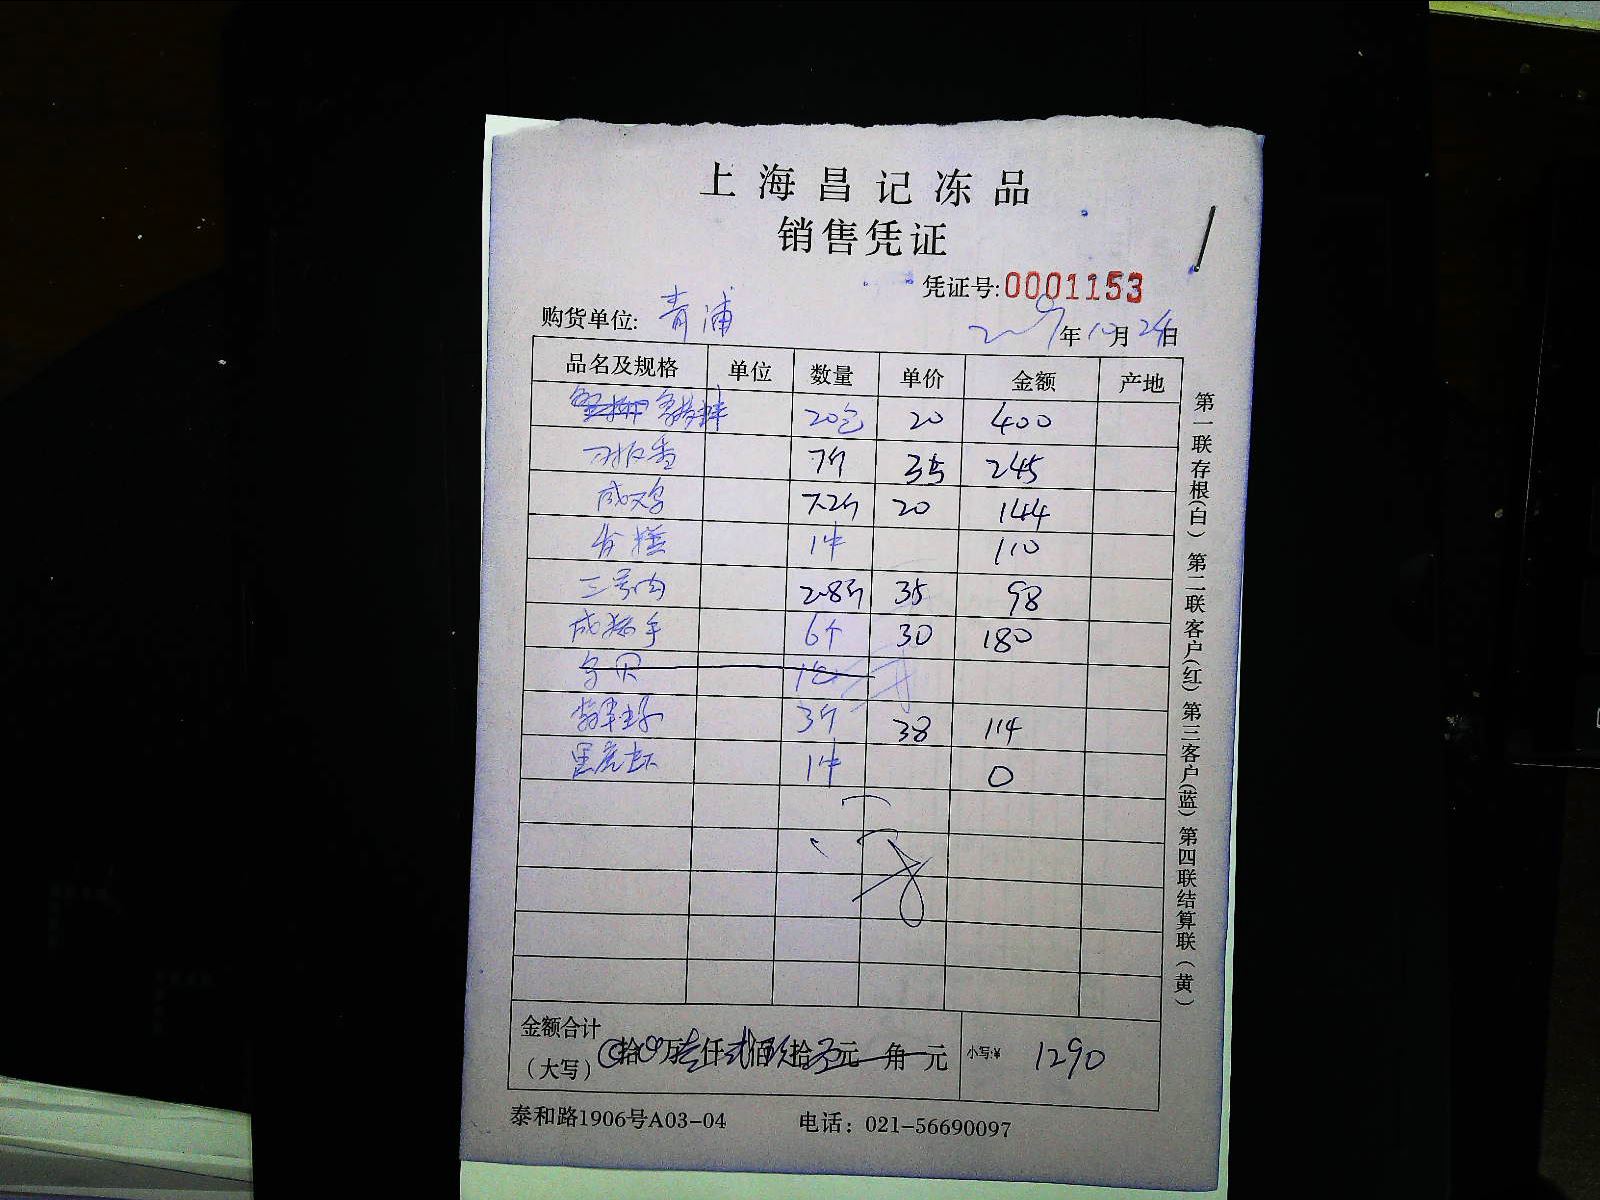 上海昌记冻品
销售凭证
凭证号:0001153
购货单位: 青浦
2019年10月24日
品名及规格 单位 数量 单价 金额 产地
20包 20 400
刀板香 7斤 35 245
咸鸡 7.2斤 20 144
年糕 1件 110
三号肉 2.8斤 35 98
咸猪手 6个 30 180
3斤 38 114
黑虎虾 1件 0
金额合计
(大写) 拾 万壹仟贰佰玖拾 元 角 元 小写:¥ 1290
泰和路1906号A03-04 电话：021-56690097
第一联存根(白) 第二联客户(红) 第三客户(蓝) 第四联结算联(黄)